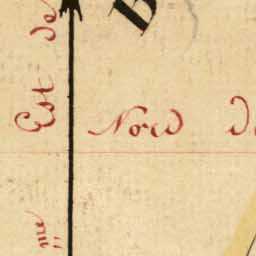 Est de
Nord
me